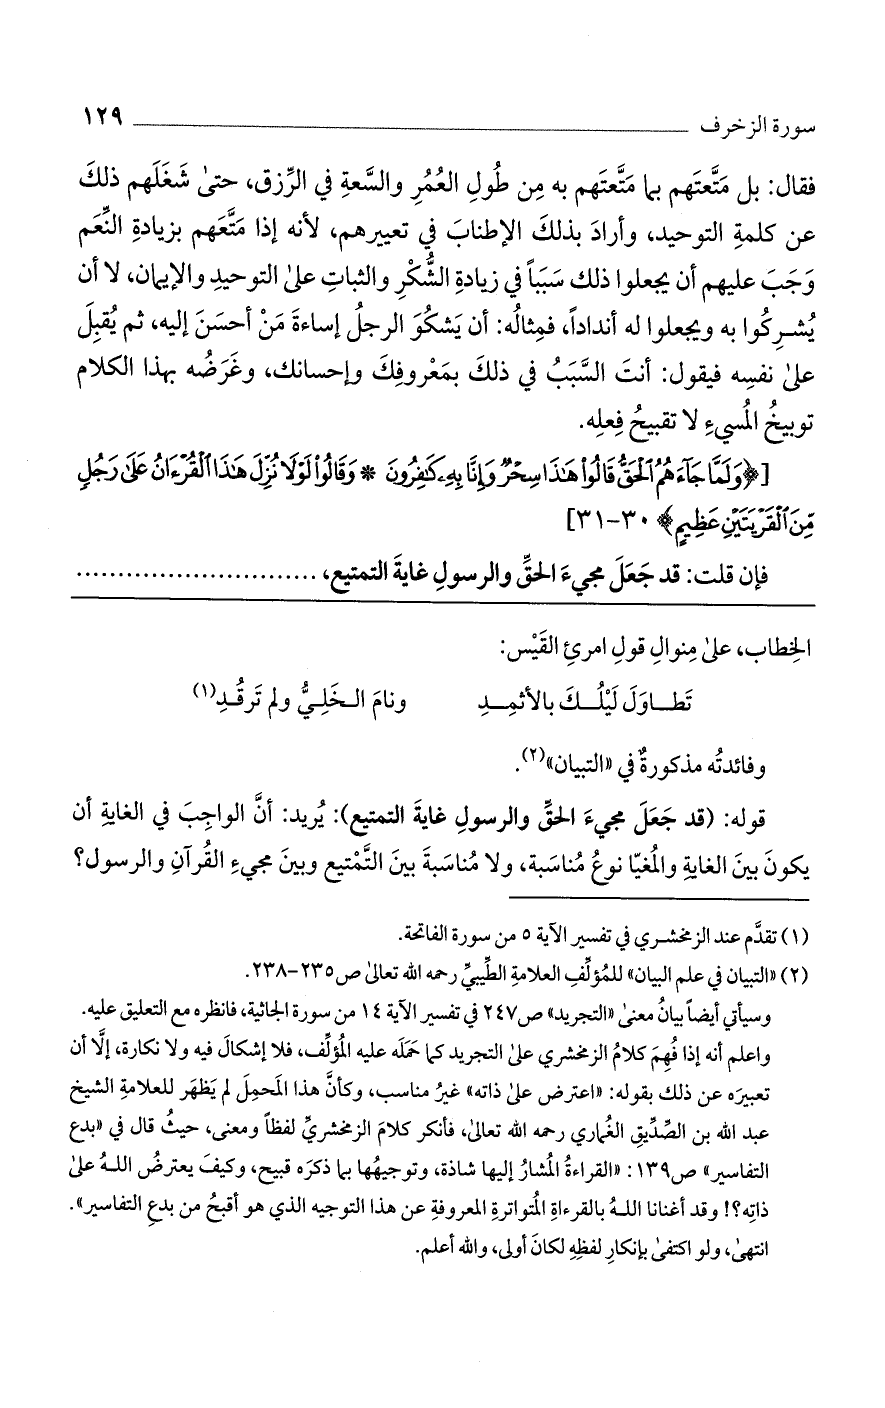 سورة الزخرف ١٢٩
فقال: بل مَتَّعتَهم بما مَتَّعتَهم به مِن طُولِ العُمُرِ والسَّعةِ في الرِّزق، حتىٰ شَغَلَهم ذلكَ
عن كلمةِ التوحيد، وأرادَ بذلكَ الإطنابَ في تعييرهم، لأنه إذا مَتَّعَهم بزيادةِ النِّعَم
وَجَبَ عليهم أن يجعلوا ذلك سَبَباً في زيادةِ الشُّكْرِ والثباتِ علىٰ التوحيدِ والإيمان، لا أن
يُشرِكُوا به ويجعلوا له أنداداً، فمِثالُه: أن يَشكُوَ الرجلُ إساءةَ مَنْ أحسَنَ إليه، ثم يُقبِلَ
علىٰ نفسِه فيقول: أنتَ السَّبَبُ في ذلكَ بمَعْروفِكَ وإحسانك، وغَرَضُه بهذا الكلام
توبيخُ المُسيءِ لا تقبيحُ فِعلِه.
[﴿وَلَمَّا جَآءَهُمُ ٱلْحَقُّ قَالُوا۟ هَـٰذَا سِحْرٌ وَإِنَّا بِهِۦ كَـٰفِرُونَ * وَقَالُوا۟ لَوْلَا نُزِّلَ هَـٰذَا ٱلْقُرْءَانُ عَلَىٰ رَجُلٍ
مِّنَ ٱلْقَرْيَتَيْنِ عَظِيمٍ﴾ ٣٠-٣١]
فإن قلت: قد جَعَلَ مجيءَ الحقِّ والرسولِ غايةَ التمتيع، .............................
الخِطاب، علىٰ مِنوالِ قولِ امرئِ القَيْس:
تَطـاوَلَ لَيْلُـكَ بالأثمِـدِ ونامَ الـخَلِـيُّ ولم تَرقُـدِ(١)
وفائدتُه مذكورةٌ في «التبيان»(٢).
قوله: (قد جَعَلَ مجيءَ الحقِّ والرسولِ غايةَ التمتيع): يُريد: أنَّ الواجِبَ في الغايةِ أن
يكونَ بينَ الغايةِ والمُغيّا نوعُ مُناسَبة، ولا مُناسَبةَ بينَ التَّمْتيع وبينَ مجيءِ القُرآنِ والرسول؟
(١) تقدَّم عند الزمخشري في تفسير الآية ٥ من سورة الفاتحة.
(٢) «التبيان في علم البيان» للمُؤلِّفِ العلامةِ الطِّيبيِّ رحمه الله تعالىٰ ص٢٣٥-٢٣٨.
وسيأتي أيضاً بيانُ معنىٰ «التجريد» ص٢٤٧ في تفسير الآية ١٤ من سورة الجاثية، فانظره مع التعليق عليه.
واعلم أنه إذا فُهِمَ كلامُ الزمخشري علىٰ التجريد كما حَمَلَه عليه المُؤلِّف، فلا إشكالَ فيه ولا نكارة، إلَّا أن
تعبيرَه عن ذلك بقوله: «اعترض علىٰ ذاته» غيرُ مناسب، وكأنَّ هذا المَحمِلَ لم يَظهَر للعلامةِ الشيخ
عبد الله بن الصِّدِّيقِ الغُماري رحمه الله تعالىٰ، فأنكر كلامَ الزمخشريِّ لفظاً ومعنى، حيثُ قال في «بدع
التفاسير» ص١٣٩: «القراءةُ المُشارُ إليها شاذة، وتوجيهُها بما ذكرَه قبيح، وكيفَ يعترضُ اللهُ علىٰ
ذاتِه؟! وقد أغنانا اللهُ بالقرءاةِ المُتواترةِ المعروفةِ عن هذا التوجيه الذي هو أقبحُ من بدعِ التفاسير».
انتهىٰ، ولو اكتفىٰ بإنكارِ لفظِهِ لكانَ أولى، والله أعلم.